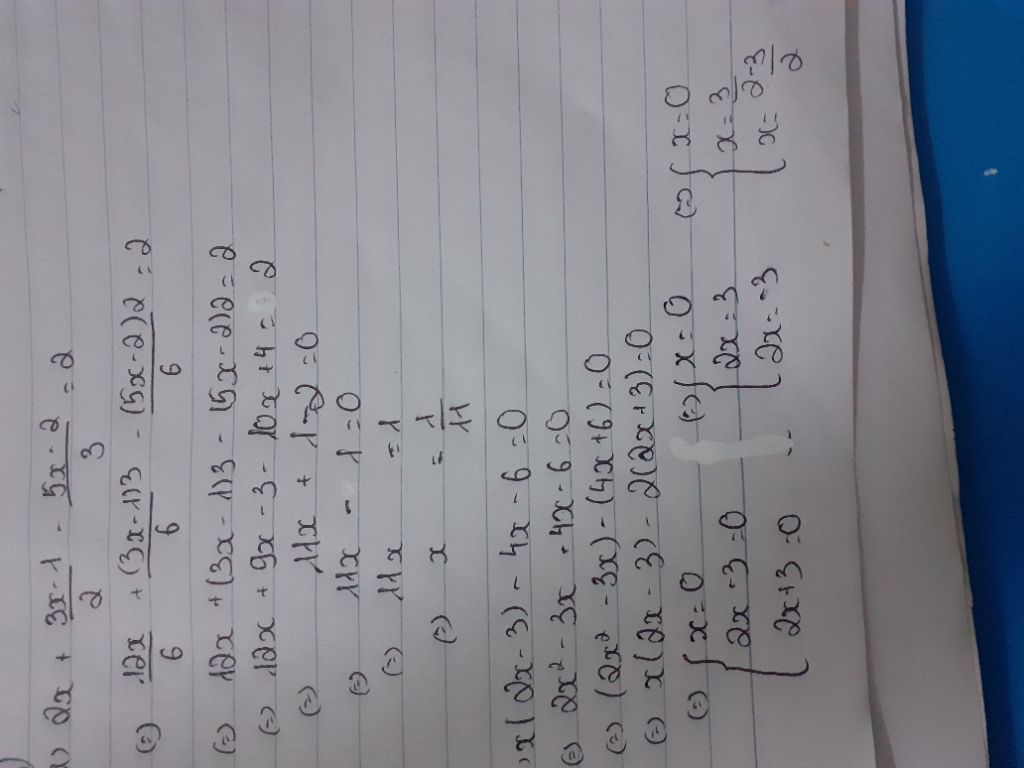 a) 2x + (3x-1)/2 - (5x-2)/3 = 2
(=) 12x/6 + (3x-1)3/6 - (5x-2)2/6 = 2
(=) 12x + (3x-1)3 - (5x-2)2 = 2
(=) 12x + 9x - 3 - 10x + 4 = 2
(=) 11x + 1 - 2 = 0
(=) 11x - 1 = 0
(=) 11x = 1
(=) x = 1/11
x(2x-3) - 4x - 6 = 0
(=) 2x² - 3x - 4x - 6 = 0
(=) (2x² - 3x) - (4x+6) = 0
(=) x(2x-3) - 2(2x+3) = 0
(=) { x=0 (=) { x=0 (=) { x=0
{ 2x-3=0 { 2x=3 { x=3/2
{ 2x+3=0 { 2x=-3 { x=-3/2